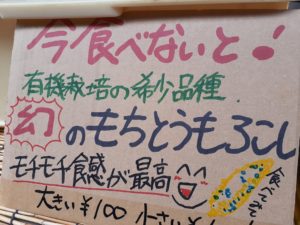 今食べないと!
有機栽培の希少品種
幻のもちとうもろこし
モチモチ食感が最高
食べてみて
大きい¥100 小さい¥